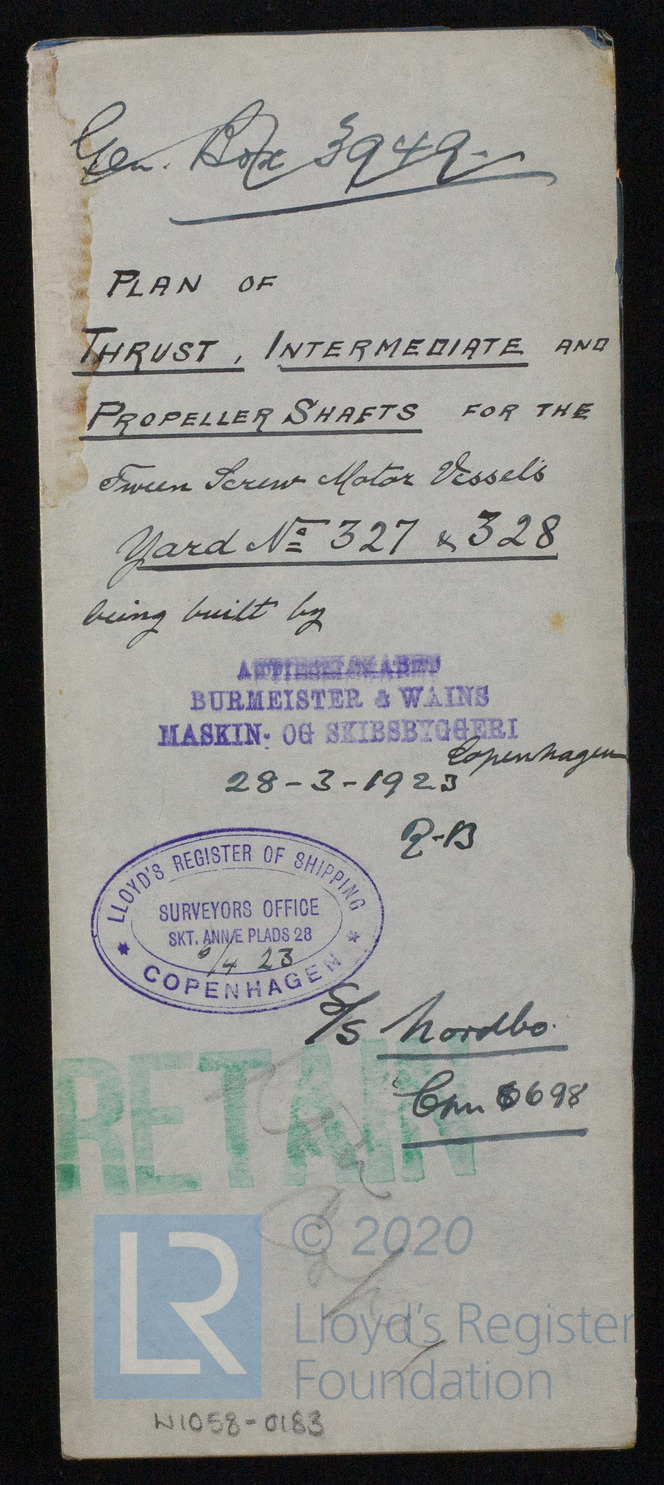 Gen. Box 3949.
PLAN OF
THRUST, INTERMEDIATE AND
PROPELLER SHAFTS FOR THE
Tween Screw Motor Vessels
Yard No 327 & 328
being built by
AKTIESELSKABET
BURMEISTER & WAINS
MASKIN- OG SKIBSBYGGERI
Copenhagen
28-3-1923
LLOYD'S REGISTER OF SHIPPING
SURVEYORS OFFICE
SKT. ANNÆ PLADS 28
/4 23
COPENHAGEN
S/S Nordbo.
Cpn 6698
RETAIN
LR
© 2020
Lloyd's Register
Foundation
W1058-0183